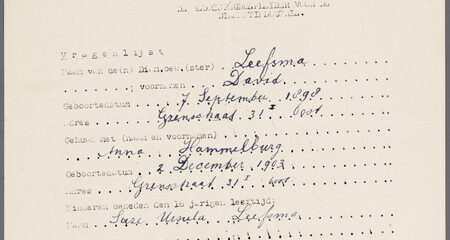 Vragenlijst
Naam van de(n) Dien.bew.(ster) Leefsma
" " : voornamen David
Geboortedatum 7 September 1898
Adres Grensstraat 31 I
Gehuwd met (naam en voornamen)
Anna Hammelburg
Geboortedatum 2 December 1903
Adres Grensstraat 31 I
Kinderen beneden den 16 jarigen leeftijd:
Naam Suze Ursula Leefsma